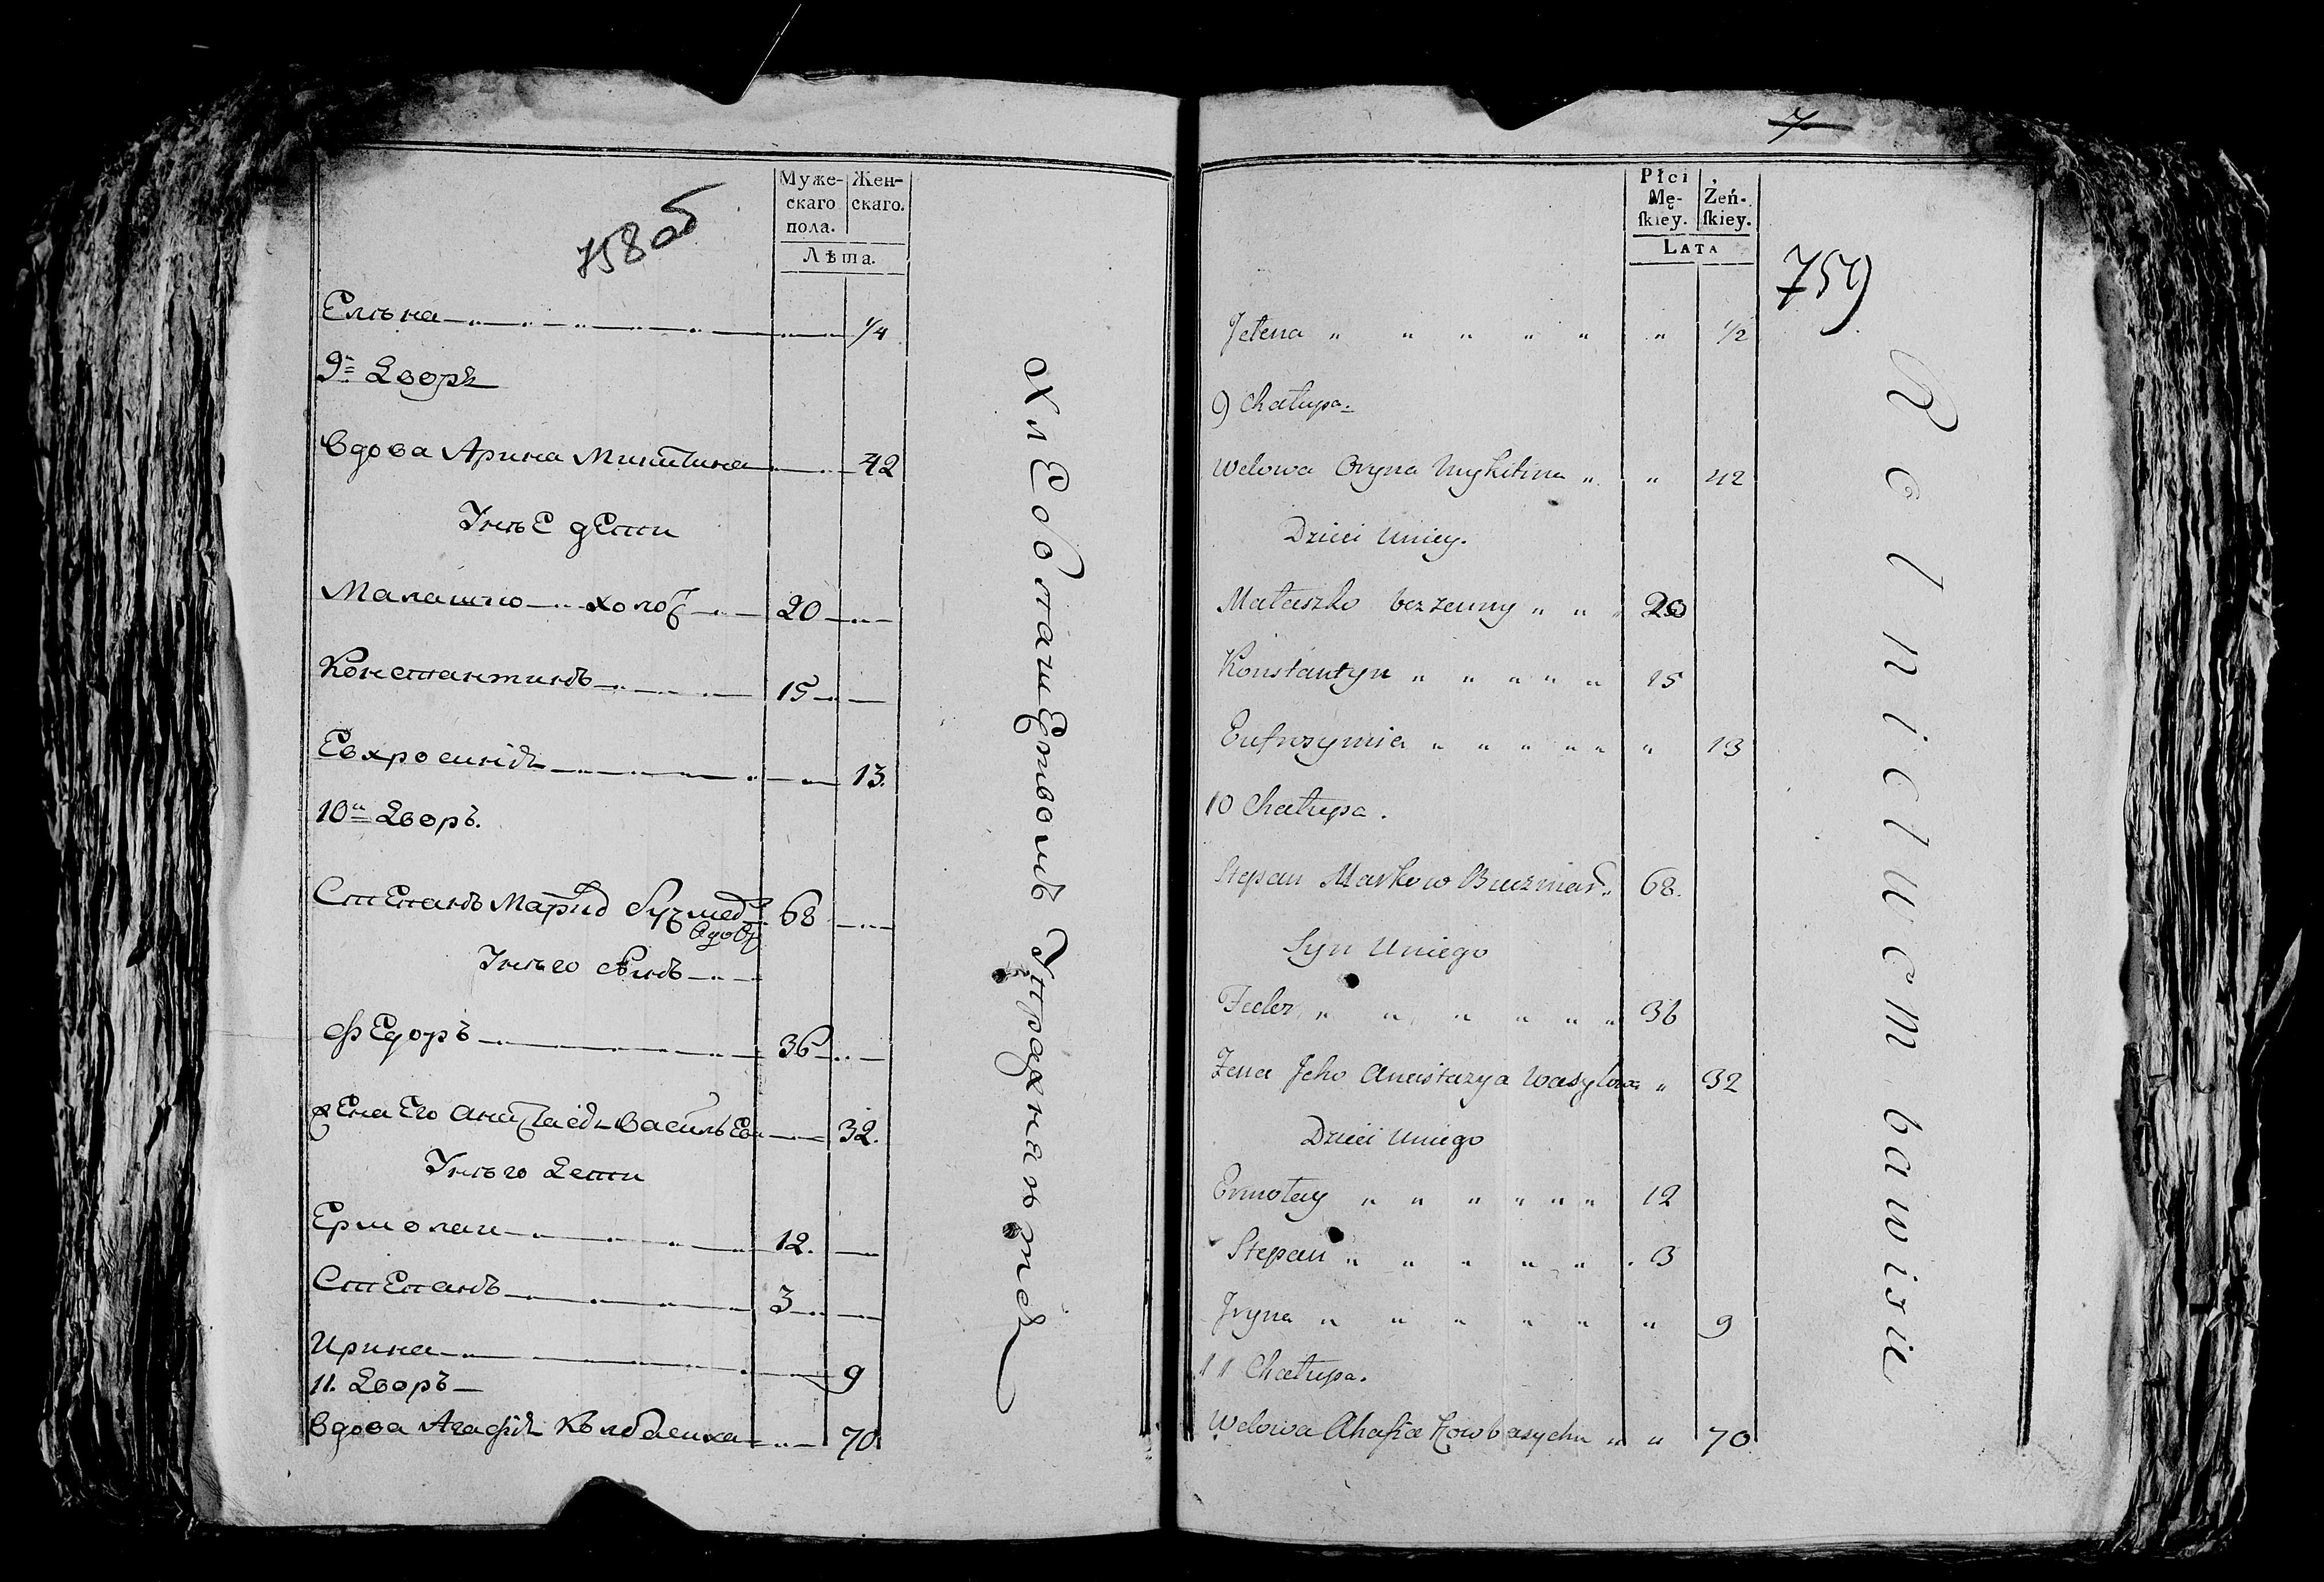 758 об
Муже-
скаго
пола.
Жен-
скаго.
Лѣта.
Елѣна 1/4
9й Дворъ
Вдова Арина Микитина 42
У нѣе дети
Малашко холостъ 20
Константинъ 15
Евхросинія 13.
10й Дворъ.
Степанъ Марков 68
вдовъ
У нѣго сынъ
Федоръ 36
Жена Его Анастасія Васильева 32.
У нѣго Дети
Ермолаи 12.
Степанъ 3
Ирина 9
11. Дворъ
Вдова Агафія 70
Хлебопашеством Упражняются
7
Płci
Mę-
ſkiey.
Żeń-
ſkiey.
LATA
759
Jełena 1/2
9 Chałupa.
Wdowa Oryna Mykitina 42
Dzieci Uniey.
Małaszko bezzenny 20
Konstantyn 15
Eufrozymia 13
10 Chałupa.
Stepan Markow 68.
Syn Uniego
Fedor 36
Zena Jeho Anastazya Wasylowa 32
Dzieci Uniego
Ermołay 12
Stepan 3
Iryna 9
11 Chałupa.
Wdowa Ahafia Kowbasycha 70
Rolnictwem bawisie